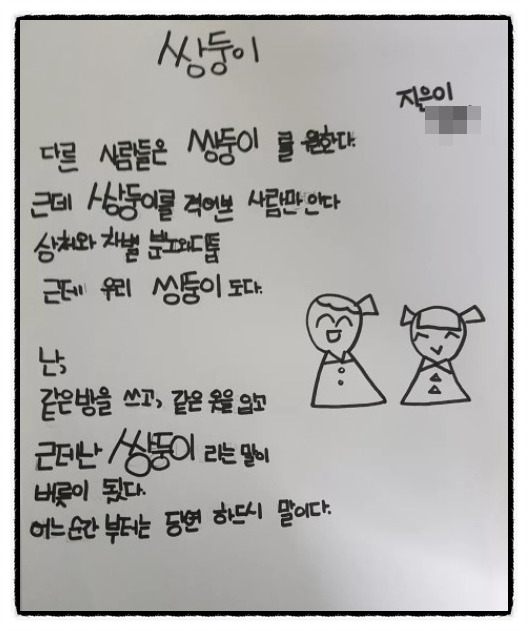 쌍둥이
지은이
다른 사람들은 쌍둥이 를 원한다.
근데 쌍둥이를 겪어본 사람만 안다
상처와 차별 분노와 다툼
근데 우리 쌍둥이 도다.
난,
같은방을 쓰고, 같은 옷을 입고
근데난 쌍둥이 라는 말이
버릇이 됬다.
어느순간 부터는 당연 하드시 말이다.